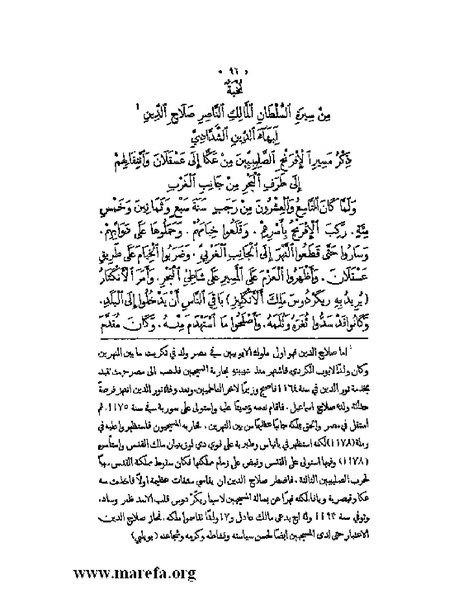 ٩٦
نخبة
مِنْ سِيرَةِ السُّلْطَانِ الْمَالِكِ النَّاصِرِ صَلَاحِ الدِّينِ ١
لِبَهَاءِ الدِّينِ الشَّدَّادِيِّ
ذِكْرُ مَسِيرِ الْإِفْرَنْجِ الصَّلِيبِيِّينَ مِنْ عَكَّا إِلَى عَسْقَلَانَ وَانْتِقَالِهِمْ
إِلَى طَرَفِ الْبَحْرِ مِنْ جَانِبِ الْغَرْبِ
وَلَمَّا كَانَ التَّاسِعُ وَالْعِشْرُونَ مِنْ رَجَبٍ سَنَةَ سَبْعٍ وَثَمَانِينَ وَخَمْسِ
مِئَةٍ. رَكِبَ الْإِفْرَنْجُ بِأَسْرِهِمْ. وَقَلَعُوا خِيَامَهُمْ. وَحَمَلُوهَا عَلَى دَوَابِّهِمْ.
وَسَارُوا حَتَّى قَطَعُوا النَّهْرَ إِلَى الْجَانِبِ الْغَرْبِيِّ. وَضَرَبُوا الْخِيَامَ عَلَى طَرِيقِ
عَسْقَلَانَ. وَأَظْهَرُوا الْعَزْمَ عَلَى الْمَسِيرِ عَلَى شَاطِئِ الْبَحْرِ. وَأَمَرَ الْأَنْكِتَارُ
(يُرِيدُ بِهِ رِيكَرْدُوسَ مَلِكَ الْأَنْكِلِيزِ) بَاقِيَ النَّاسِ أَنْ يَدْخُلُوا إِلَى الْبَلَدِ.
وَكَانُوا قَدْ سَدُّوا ثُغَرَهُ وَثُلَمَهُ. وَأَصْلَحُوا مَا اسْتَهْدَمَ مِنْهُ. وَكَانَ مُقَدَّمَ
١ اما صلاح الدين فهو اولى ملوك الايوبيين في مصر ولد في تكريت ما بين النهرين
وكان والده ايوب الكردي فاشتهر منذ شبيبته بمحاربة المسيحيين فذهب الى مصر وهو تقيد
بخدمة نور الدين في سنة ١١٦٤ فاصبح وزيرًا لاخر الفاطميين وبعد وفاة نور الدين انتهز فرصة
حداثة ولده صلاح اسماعيل. فاقام نفسه وصيًا عليه واستولى على سورية في سنة ١١٧٥. ثم
استقل في مصر والحق بملكه جانبًا عظيمًا من بين النهرين. فحاربه المسيحيون فاستظهروا عليه في
رملة (١١٧٨) لكنه استظهر في بانياس وطبرية على غوي دي لوزينيان ملك القدس واستأسره
(١١٧٨) وفيها استولى على القدس وقبض على زمام مملكتها فكان سقوط مملكة القدس سببًا
للحرب الصليبيين الثالثة. فاضطر صلاح الدين ان يقاسي مشقات عظيمة اولًا فاخذت منه
عكا وقيصرية ويافا لكنه قهرًا عن بسالة المسيحيين لاسيما ريكردوس قلب الاسد ظفر وساد.
وتوفي سنة ١١٩٣ وله اخ يدعى مالك عادل و١٧ ولدًا تقاسموا ملكه. فحاز صلاح الدين
الاعتبار حتى لدى المسيحيين ايضًا لحسن سياسته ونشاطه وكرمه وشجاعته (بويلي)
www.marefa.org